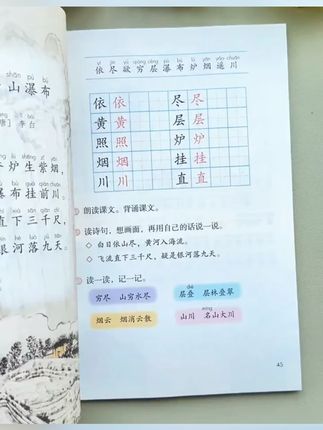 shān pù bù
山瀑布
唐] 李白
炉生紫烟，
瀑布挂前川。
直下三千尺，
银河落九天。
yī jìn yù qióng céng pù bù lú yān yáo chuān
依尽欲穷层瀑布炉烟遥川
依 依 尽 尽
黄 黄 层 层
照 照 炉 炉
烟 烟 挂 挂
川 川 直 直
朗读课文。背诵课文。
读诗句，想画面，再用自己的话说一说。
◇ 白日依山尽，黄河入海流。
◇ 飞流直下三千尺，疑是银河落九天。
读一读，记一记。
dié
穷尽 山穷水尽 层叠 层林叠翠
míng
烟云 烟消云散 山川 名山大川
45